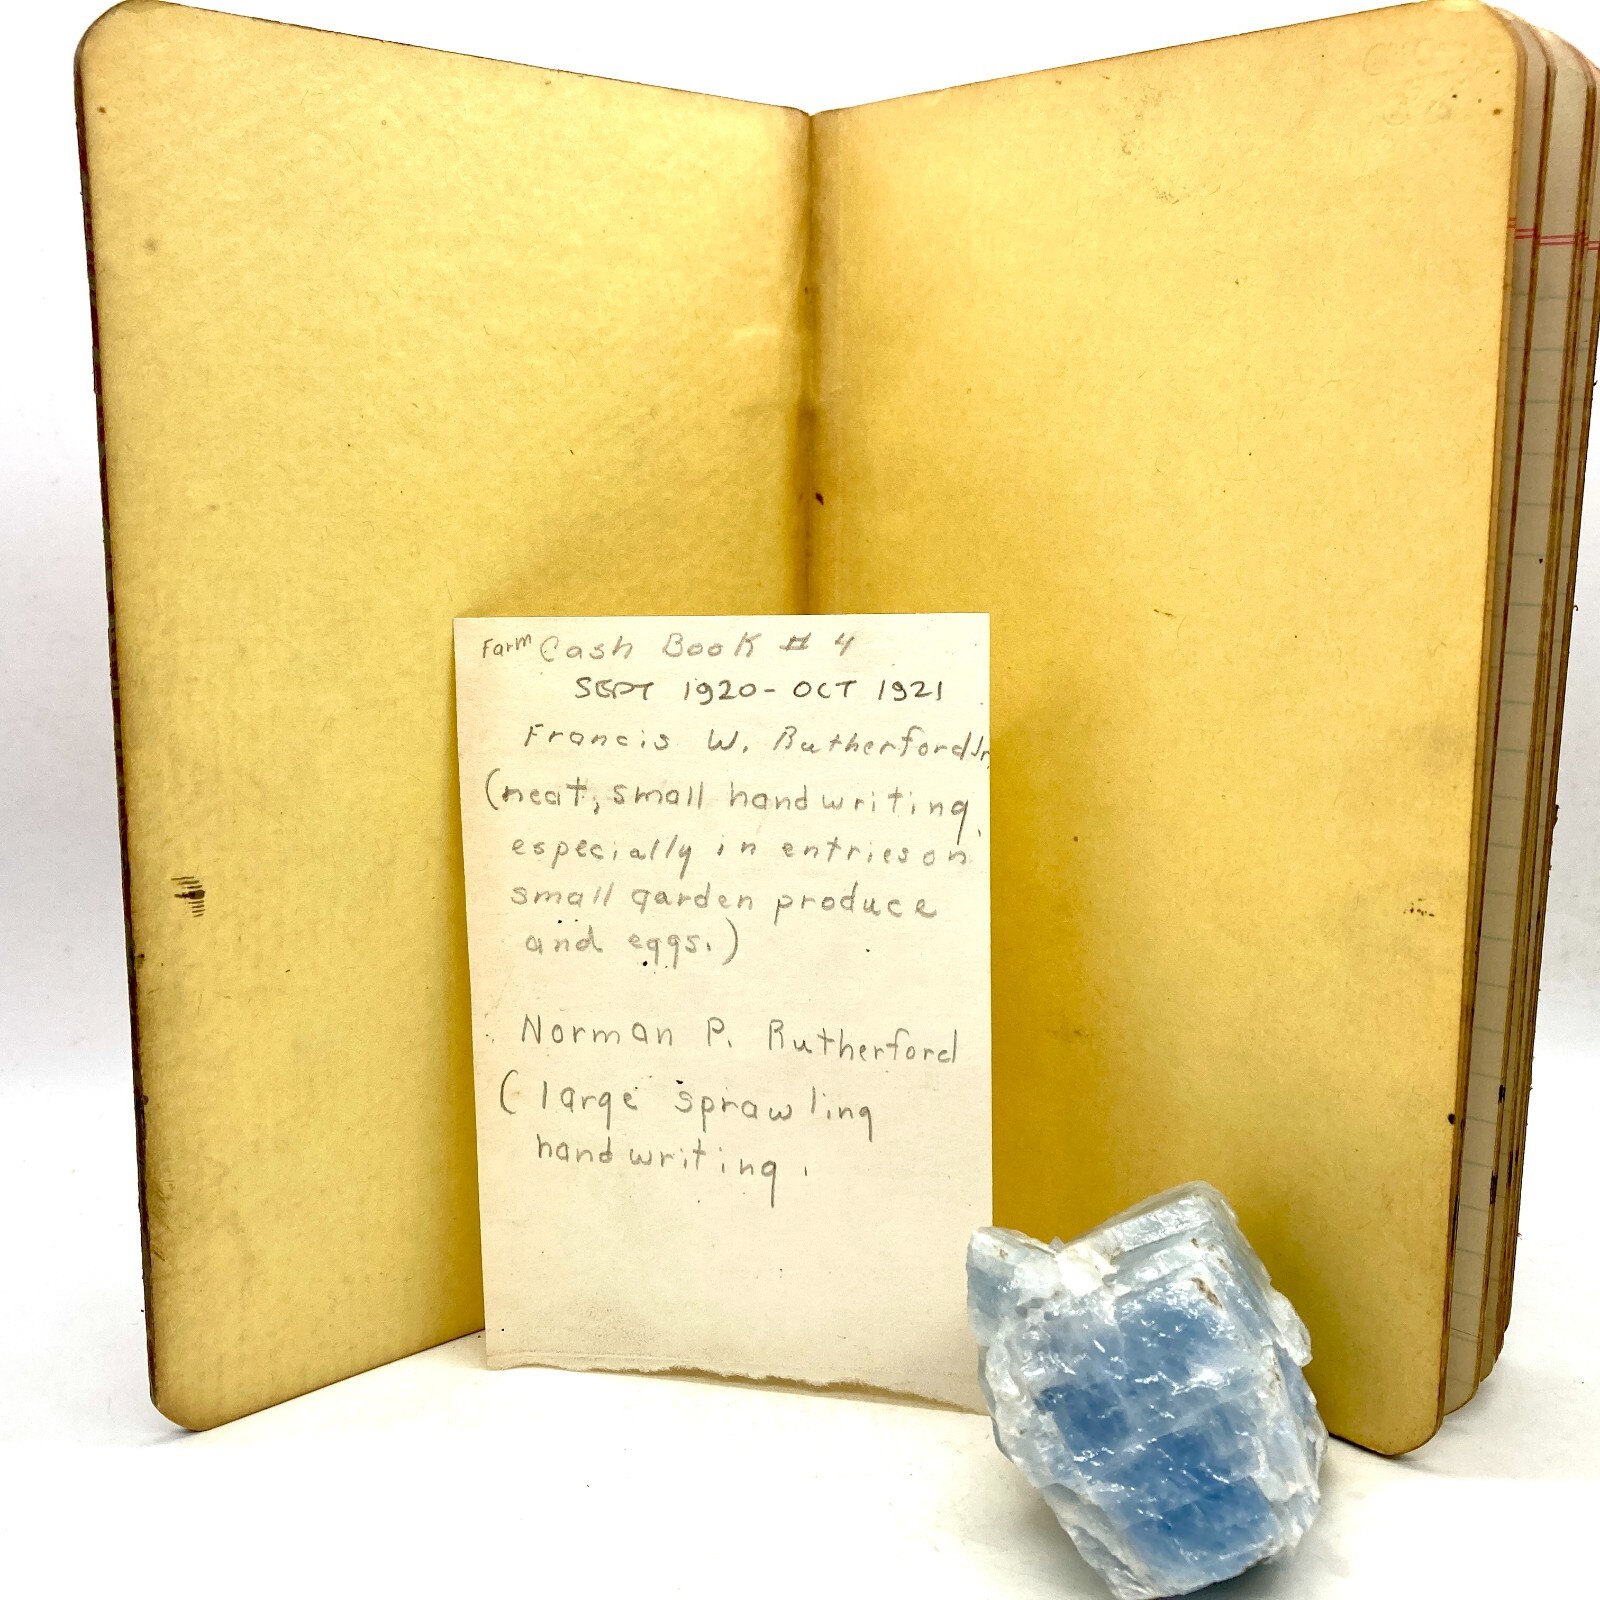 Farm Cash Book # 4
SEPT 1920 - OCT 1921
Francis W. Rutherford Jr.
(neat, small handwriting,
especially in entries on
small garden produce
and eggs.)
Norman P. Rutherford
(large sprawling
handwriting.